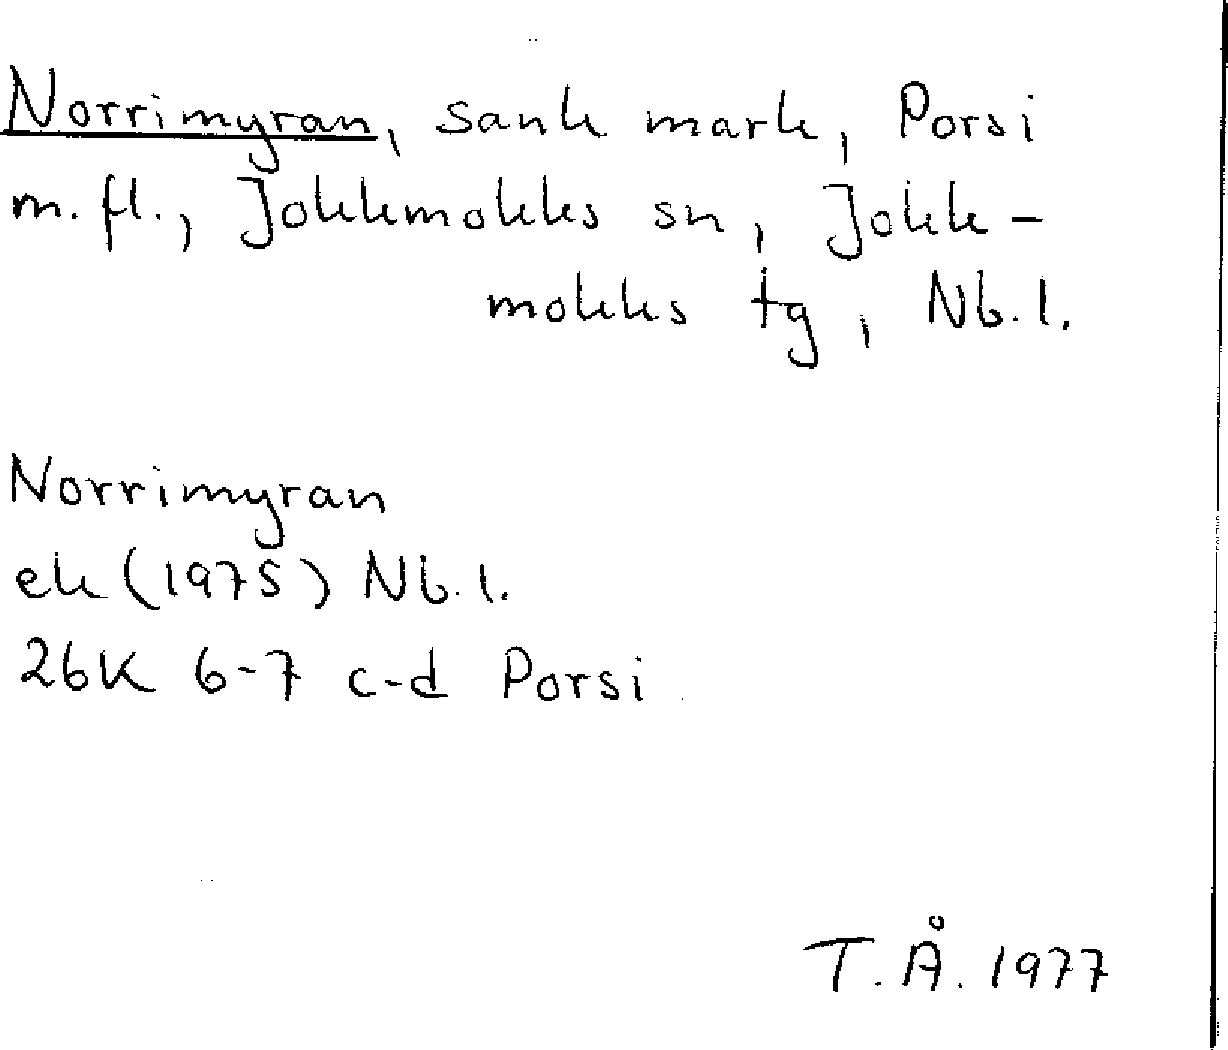 Norrimyran, sank mark, Porsi
m.fl., Jokkmokks sn, Jokk-
mokks tg, Nb.l.
Norrimyran
ek (1975) Nb.l.
26K 6-7 c-d Porsi
T.Å. 1977